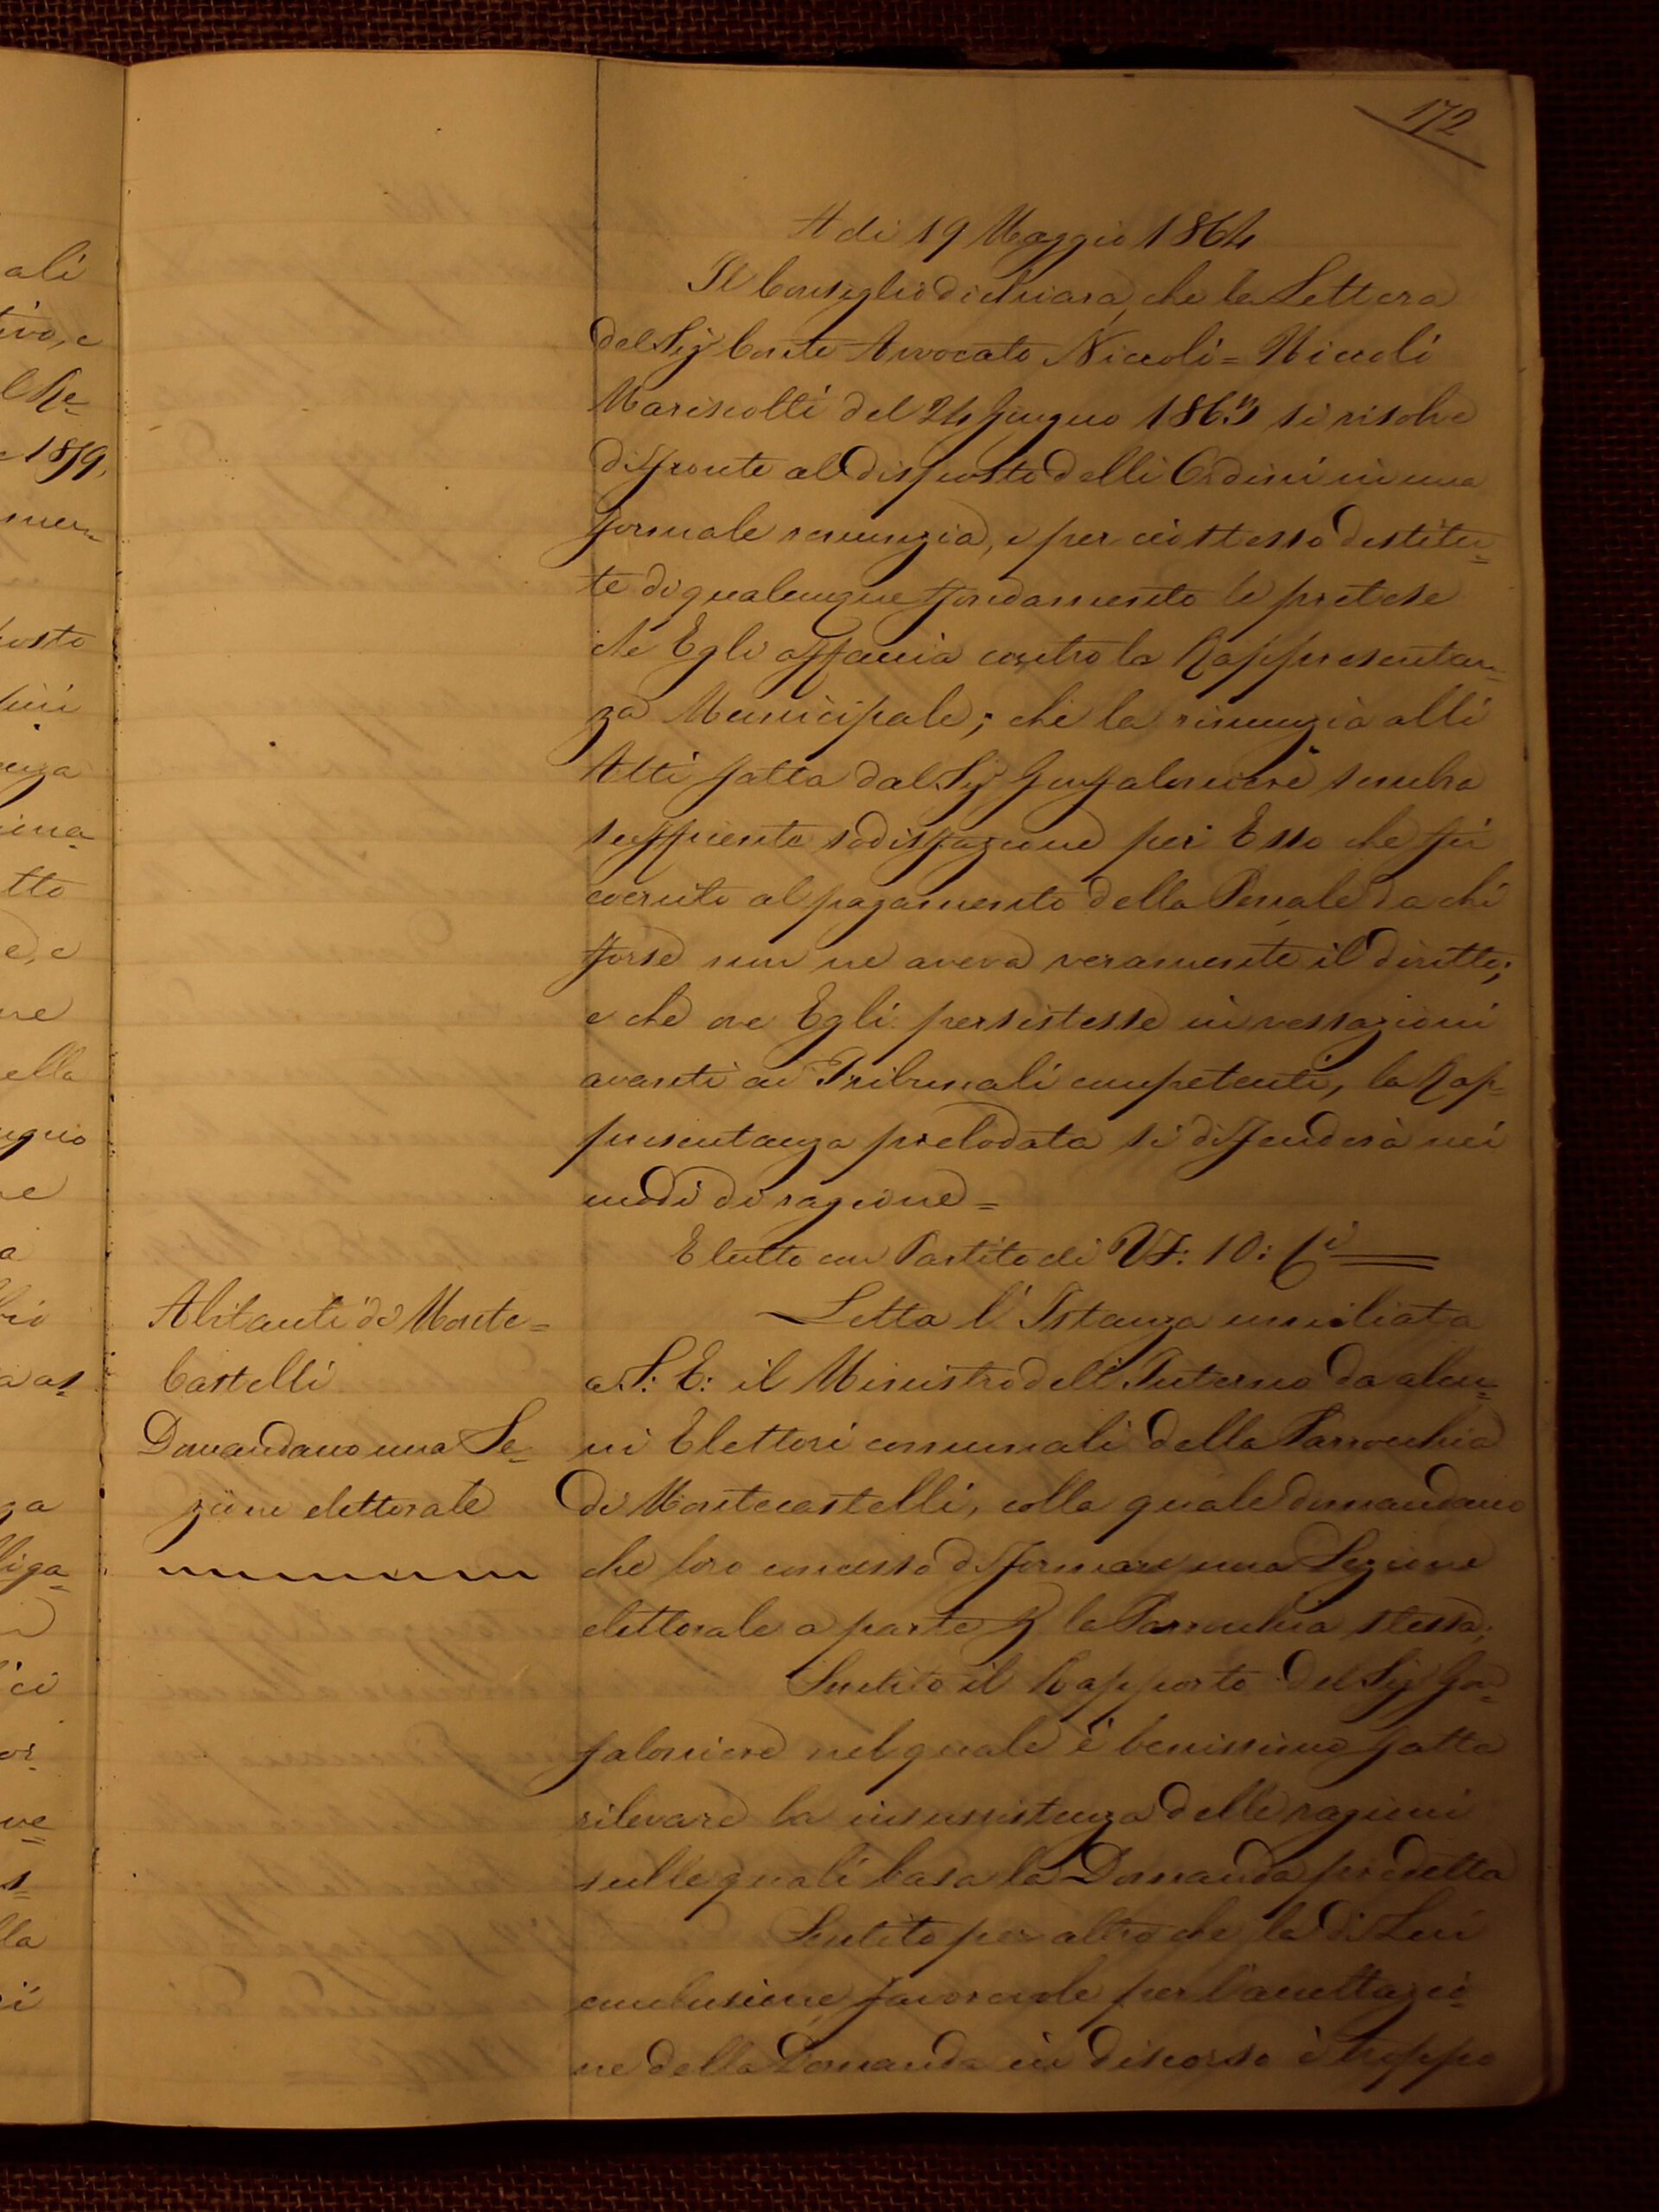 172
A di 19 Maggio 1864
Il Consiglio dichiara, che la Lettera
del Sig Conte Avvocato Niccolò = Niccoli
Mariscotti del 24 Giugno 1863 si risolve
di fronte al disposto delli Ordini in una
formale renunzia, e per ciò stesso destitu=
te di qualunque fondamento le pretese
che Egli affaccia contro la Rappresentan=
za Municipale; che la rinunzia alli
Atti fatta dal Sig Gonfaloniere sembra
sufficiente sodisfazione per Esso che fù
coercito al pagamento della Penale da chi
forse non ne aveva veramente il diritto;
e che ove Egli persistesse in vessazioni
avanti ai Tribunali competenti, la Rap=
presentanza prelodata si difenderà nei
modi di ragione =
E tutto con Partito di VF: 10: Ci
Abitanti di Monte=
Castelli
Domandano una Se=
zione elettorale
Letta l'Istanza umiliata
a S: E: il Ministro dell'Interno da alcu=
ni Elettori comunali della Parrocchia
di Montecastelli, colla quale domandano
che loro concesso di formare una Sezione
elettorale a parte la Parrocchia stessa;
Sentito il Rapporto del Sig Gon=
faloniere nel quale è benissimo fatta
rilevare la insussistenza delle ragioni
sulle quali basa la Domanda predetta
Sentito per altro che la di Lui
conclusione favorevole per l'accettazio=
ne della Domanda in discorso è troppo
ali
tivo, e
l Re=
1859,
posto
enza
tto
ne
ella
ugno
a
a as=
za
liga=
ci
or=
ve=
s=
lla